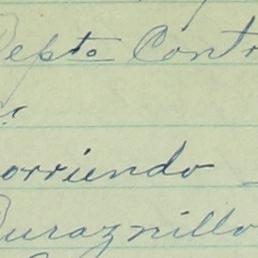 Depto Contr
orriendo
Duraznillo